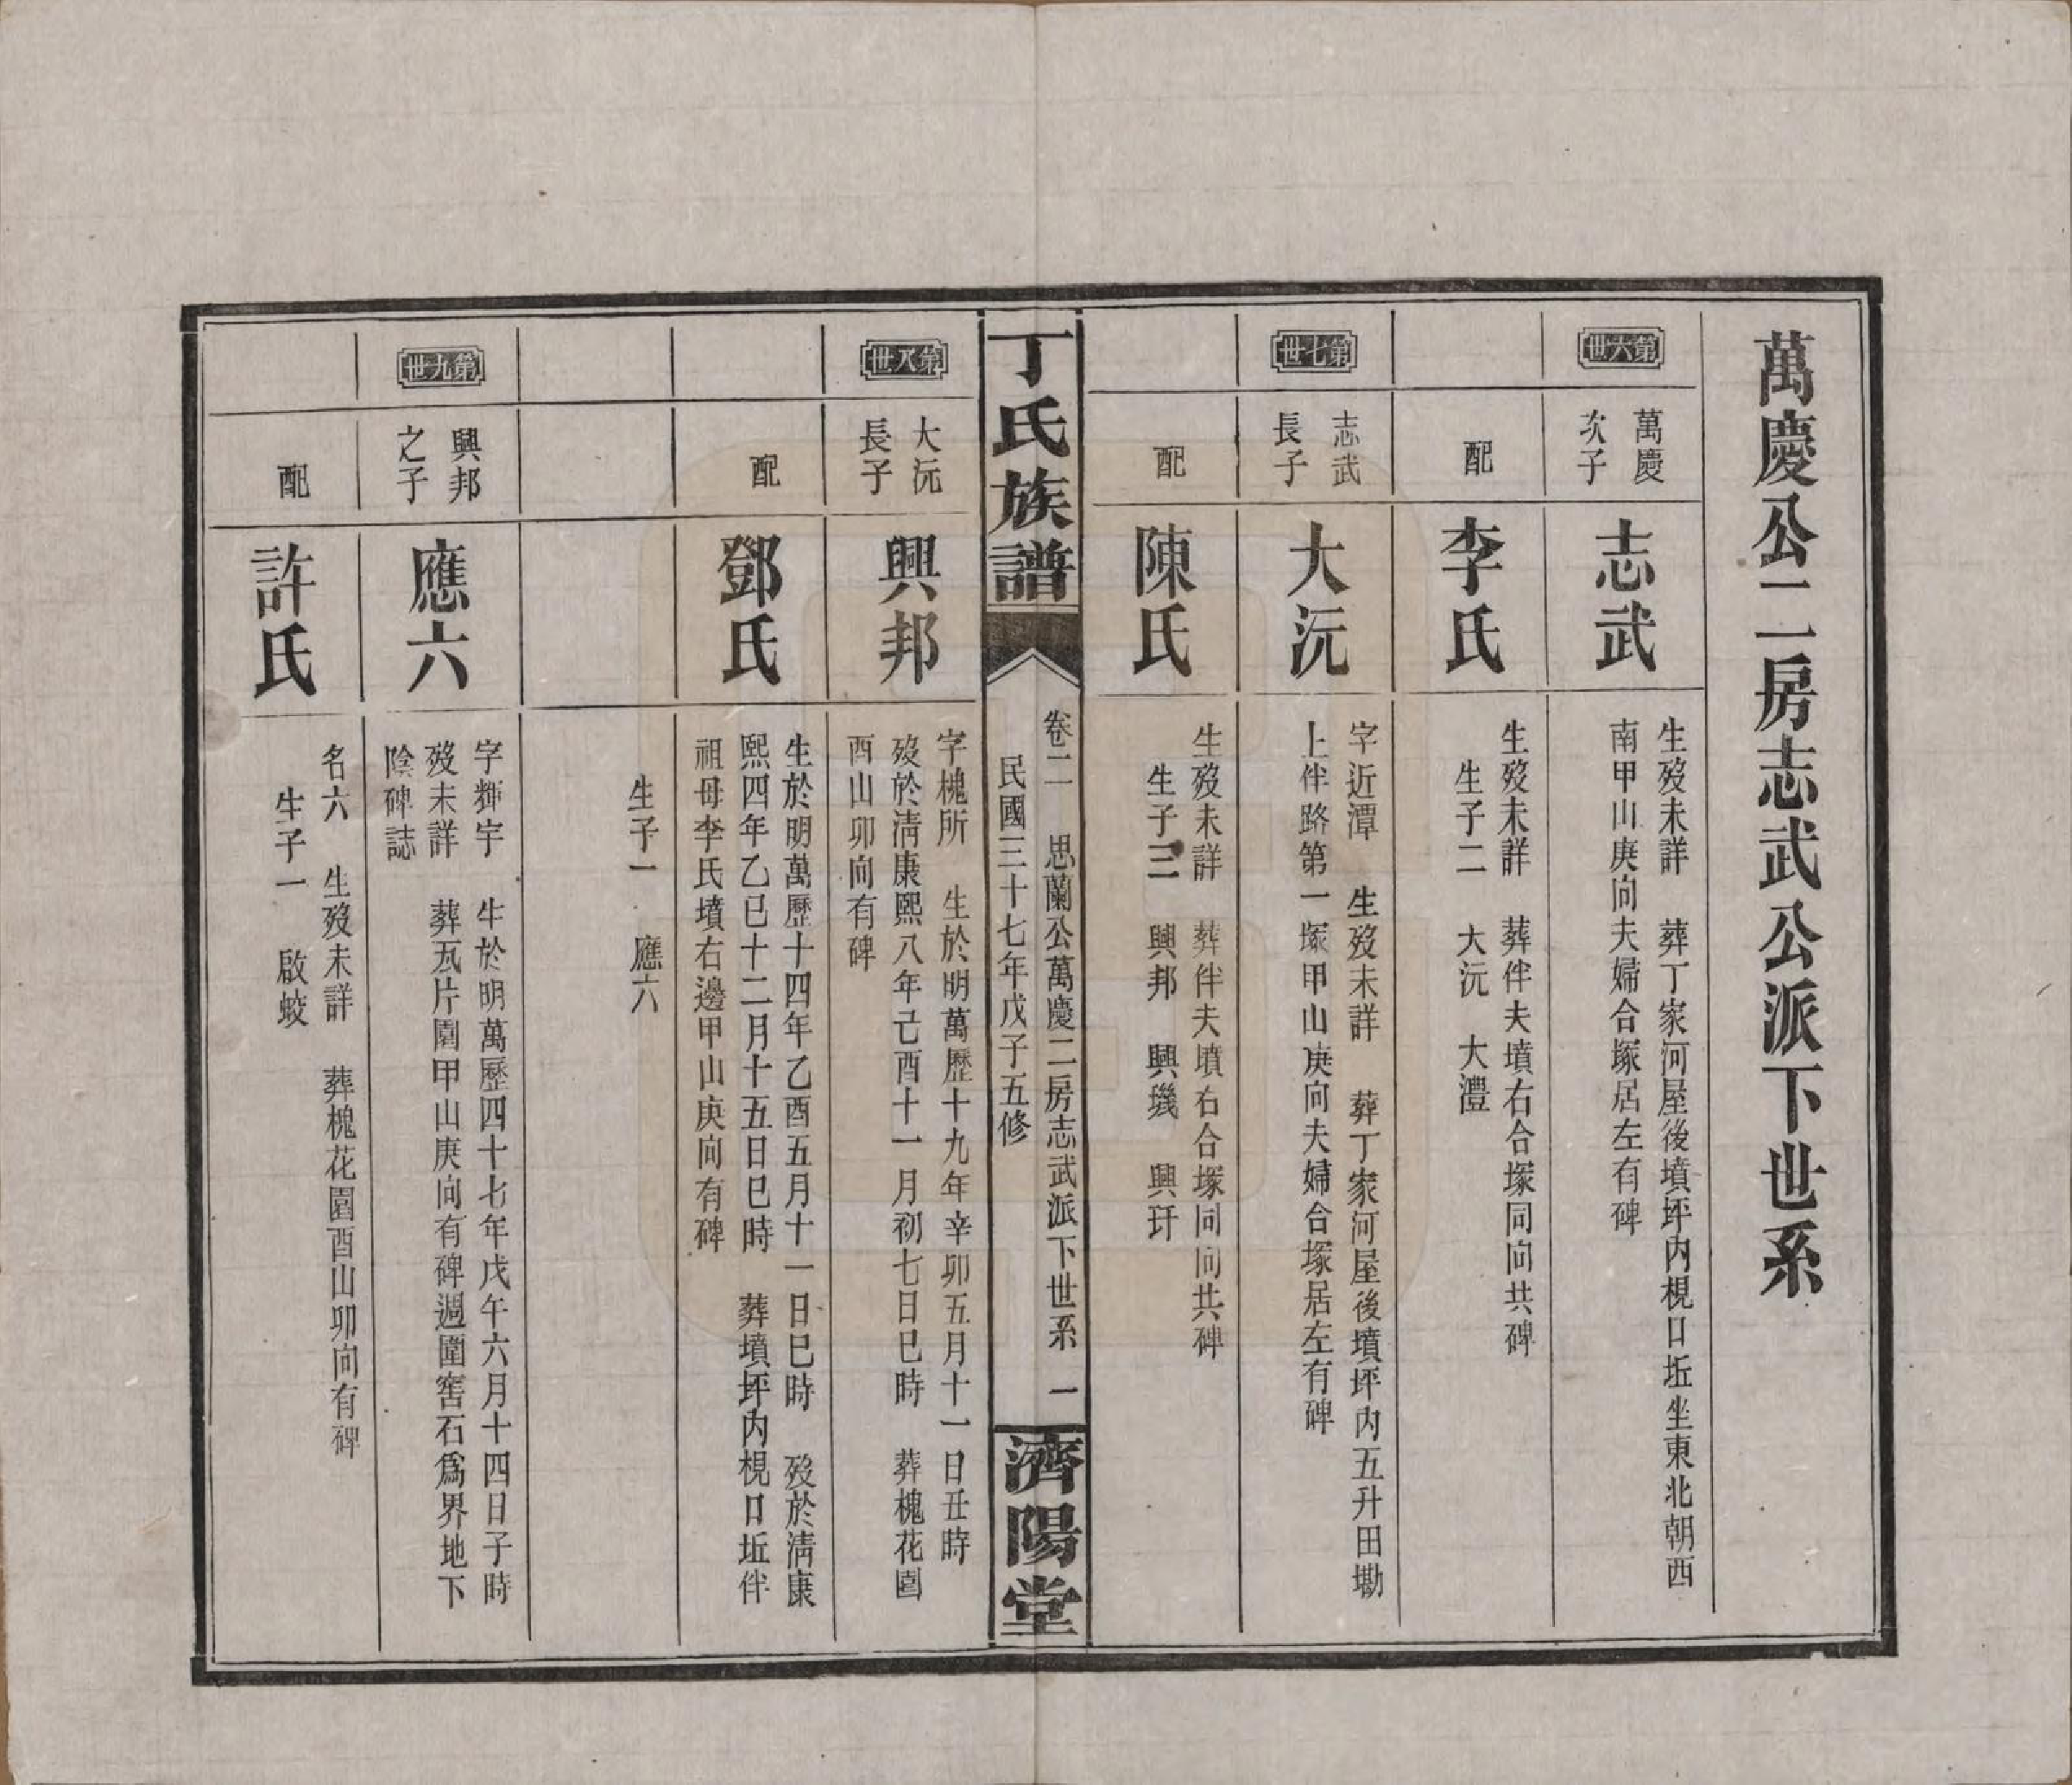 萬慶公二房志武公派下世系
第六世
萬慶
次子
志武
生歿未詳　葬丁家河屋後墳坪內梘口坵坐東北朝西
南甲山庚向夫婦合塚居左有碑
配
李氏
生歿未詳　葬伴夫墳右合塚同向共碑
生子二　大沅　大澧
第七世
志武
長子
大沅
字近潭　生歿未詳　葬丁家河屋後墳坪內五升田勘
上伴路第一塚甲山庚向夫婦合塚居左有碑
配
陳氏
生歿未詳　葬伴夫墳右合塚同向共碑
生子三　興邦　興璣　興玕
丁氏族譜
卷二　思蘭公萬慶二房志武派下世系　一
民國三十七年戊子五修
濟陽堂
第八世
大沅
長子
興邦
字槐所　生於明萬歷十九年辛卯五月十一日丑時
歿於淸康熙八年己酉十一月初七日巳時　葬槐花園
酉山卯向有碑
配
鄧氏
生於明萬歷十四年乙酉五月十一日巳時　歿於淸康
熙四年乙巳十二月十五日巳時　葬墳坪內梘口坵伴
祖母李氏墳右邊甲山庚向有碑
生子一　應六
第九世
興邦
之子
應六
字輝宇　生於明萬歷四十七年戊午六月十四日子時
歿未詳　葬瓦片園甲山庚向有碑週圍窖石爲界地下
陰碑誌
配
許氏
名六　生歿未詳　葬槐花園酉山卯向有碑
生子一　啟蛟